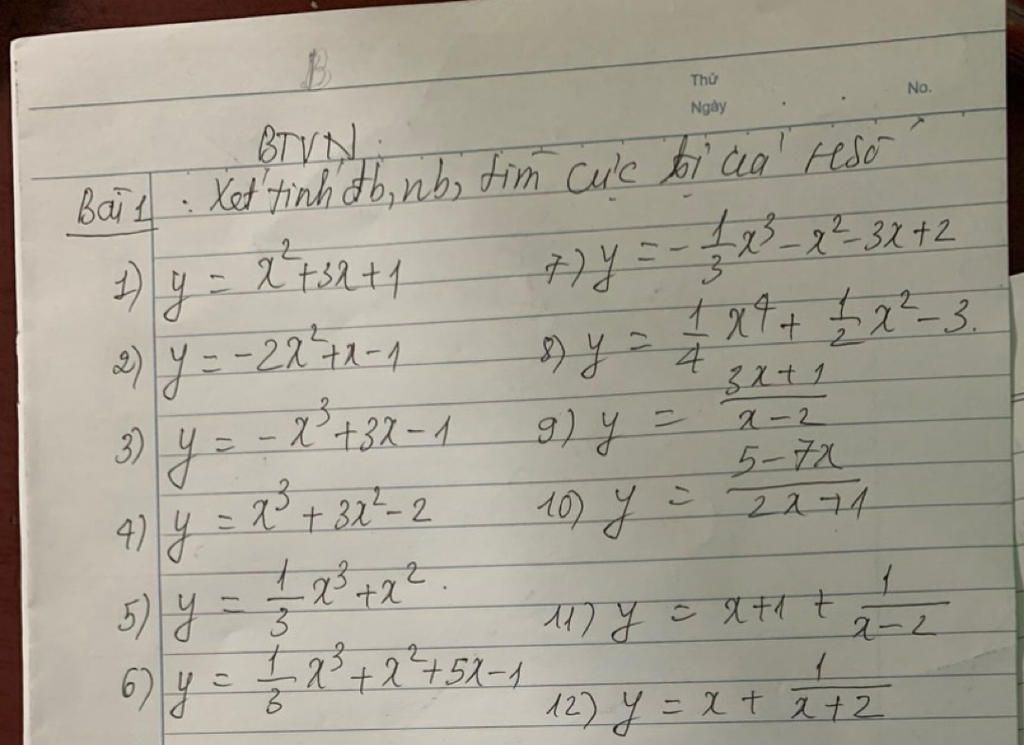 B
Thứ
Ngày
No.
BTVN:
Bài 1 : Xét tính đb, nb, tìm cực trị của HSố
1) y = x² + 3x + 1
2) y = -2x² + x - 1
3) y = -x³ + 3x - 1
4) y = x³ + 3x² - 2
5) y = 1/3 x³ + x².
6) y = 1/3 x³ + x² + 5x - 1
7) y = -1/3 x³ - x² - 3x + 2
8) y = 1/4 x⁴ + 1/2 x² - 3.
9) y = (3x + 1)/(x - 2)
10) y = (5 - 7x)/(2x + 1)
11) y = x + 1 + 1/(x - 2)
12) y = x + 1/(x + 2)